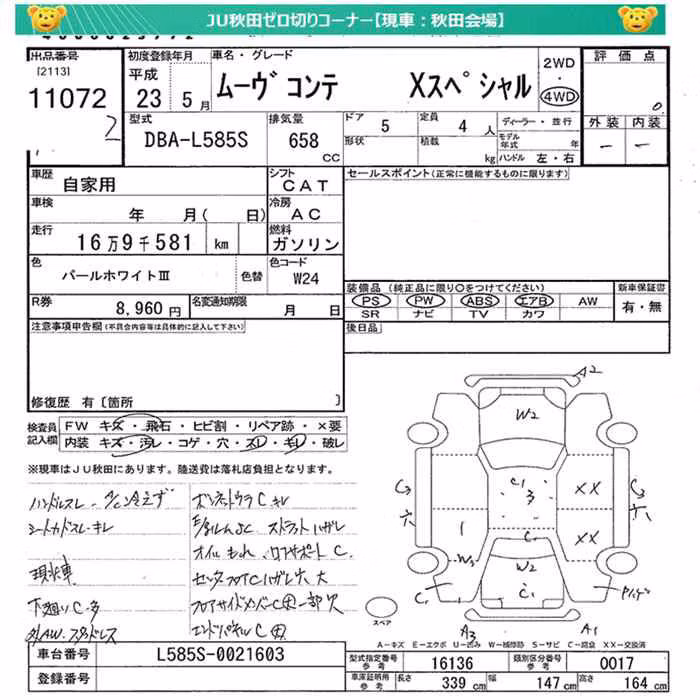 JU秋田ゼロ切りコーナー【現車：秋田会場】
出品番号
[2113]
11072
2
初度登録年月
平成
23 5月
車名・グレード
ムーヴ コンテ Xスペシャル
2WD
・
4WD
評価点
0
型式
DBA-L585S
排気量
658
CC
ドア 5
定員 4 人
ディーラー・並行
形状
積載
kg
モデル年式 年
ハンドル 左・右
外装 内装
－ －
車歴
自家用
シフト
CAT
セールスポイント(正常に機能するものに限ります)
車検
年 月( 日)
冷房
AC
走行
16万9千581 km
燃料
ガソリン
色
パールホワイトⅢ
色替
色コード
W24
装備品 (純正品に限り○をつけてください)
PS PW ABS エアB AW
SR ナビ TV カワ
新車保証書
有・無
R券
8,960 円
名変通知期限
月 日
注意事項申告欄(不具合内容等は具体的に記入して下さい)
後日品
修復歴 有〔箇所 〕
検査員記入欄
FW キズ・飛石・ヒビ割・リペア跡・×要
内装 キズ・汚レ・コゲ・穴・スレ・キレ・破レ
※現車はJU秋田にあります。陸送費は落札店負担となります。
ハンドルスレ A/C冷えず
シートカドスレ・キレ
現状車
下廻りC・多
ボンネットウラC キレ
ストラットハガレ
オイルもれ ロアサポートC
センターフロアCハガレ大
フロアサイドメンバーC 一部欠
エンドパネルC
A2
W2
C1
3
C3
XX
XX
1
C1
W3
W2
C1
C1
A3
A1
スペア
A－キズ E－エクボ U－凹み W－補修跡 S－サビ C－腐食 XX－交換済
車台番号
L585S-0021603
登録番号
型式指定番号 参考
16136
類別区分番号 参考
0017
車庫証明用 参考
長さ 339 cm
幅 147 cm
高さ 164 cm